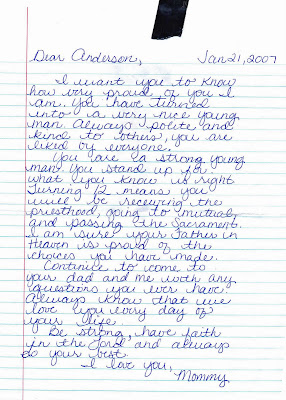 Dear Anderson, Jan 21, 2007
I want you to know
how very proud of you I
am. You have turned
into a very nice young
man. Always polite and
kind to others, you are
liked by everyone.
You are a strong young
man. You stand up for
what you know is right
Turning 12 means you
will be receiving the
priesthood, going to mutual,
and passing the Sacrament.
I am sure your Father in
Heaven is proud of the
choices you have made.
Continue to come to
your dad and me with any
questions you ever have.
Always know that we
love you every day of
your life.
Be strong, have faith
in the Lord and always
do your best.
I love you,
Mommy